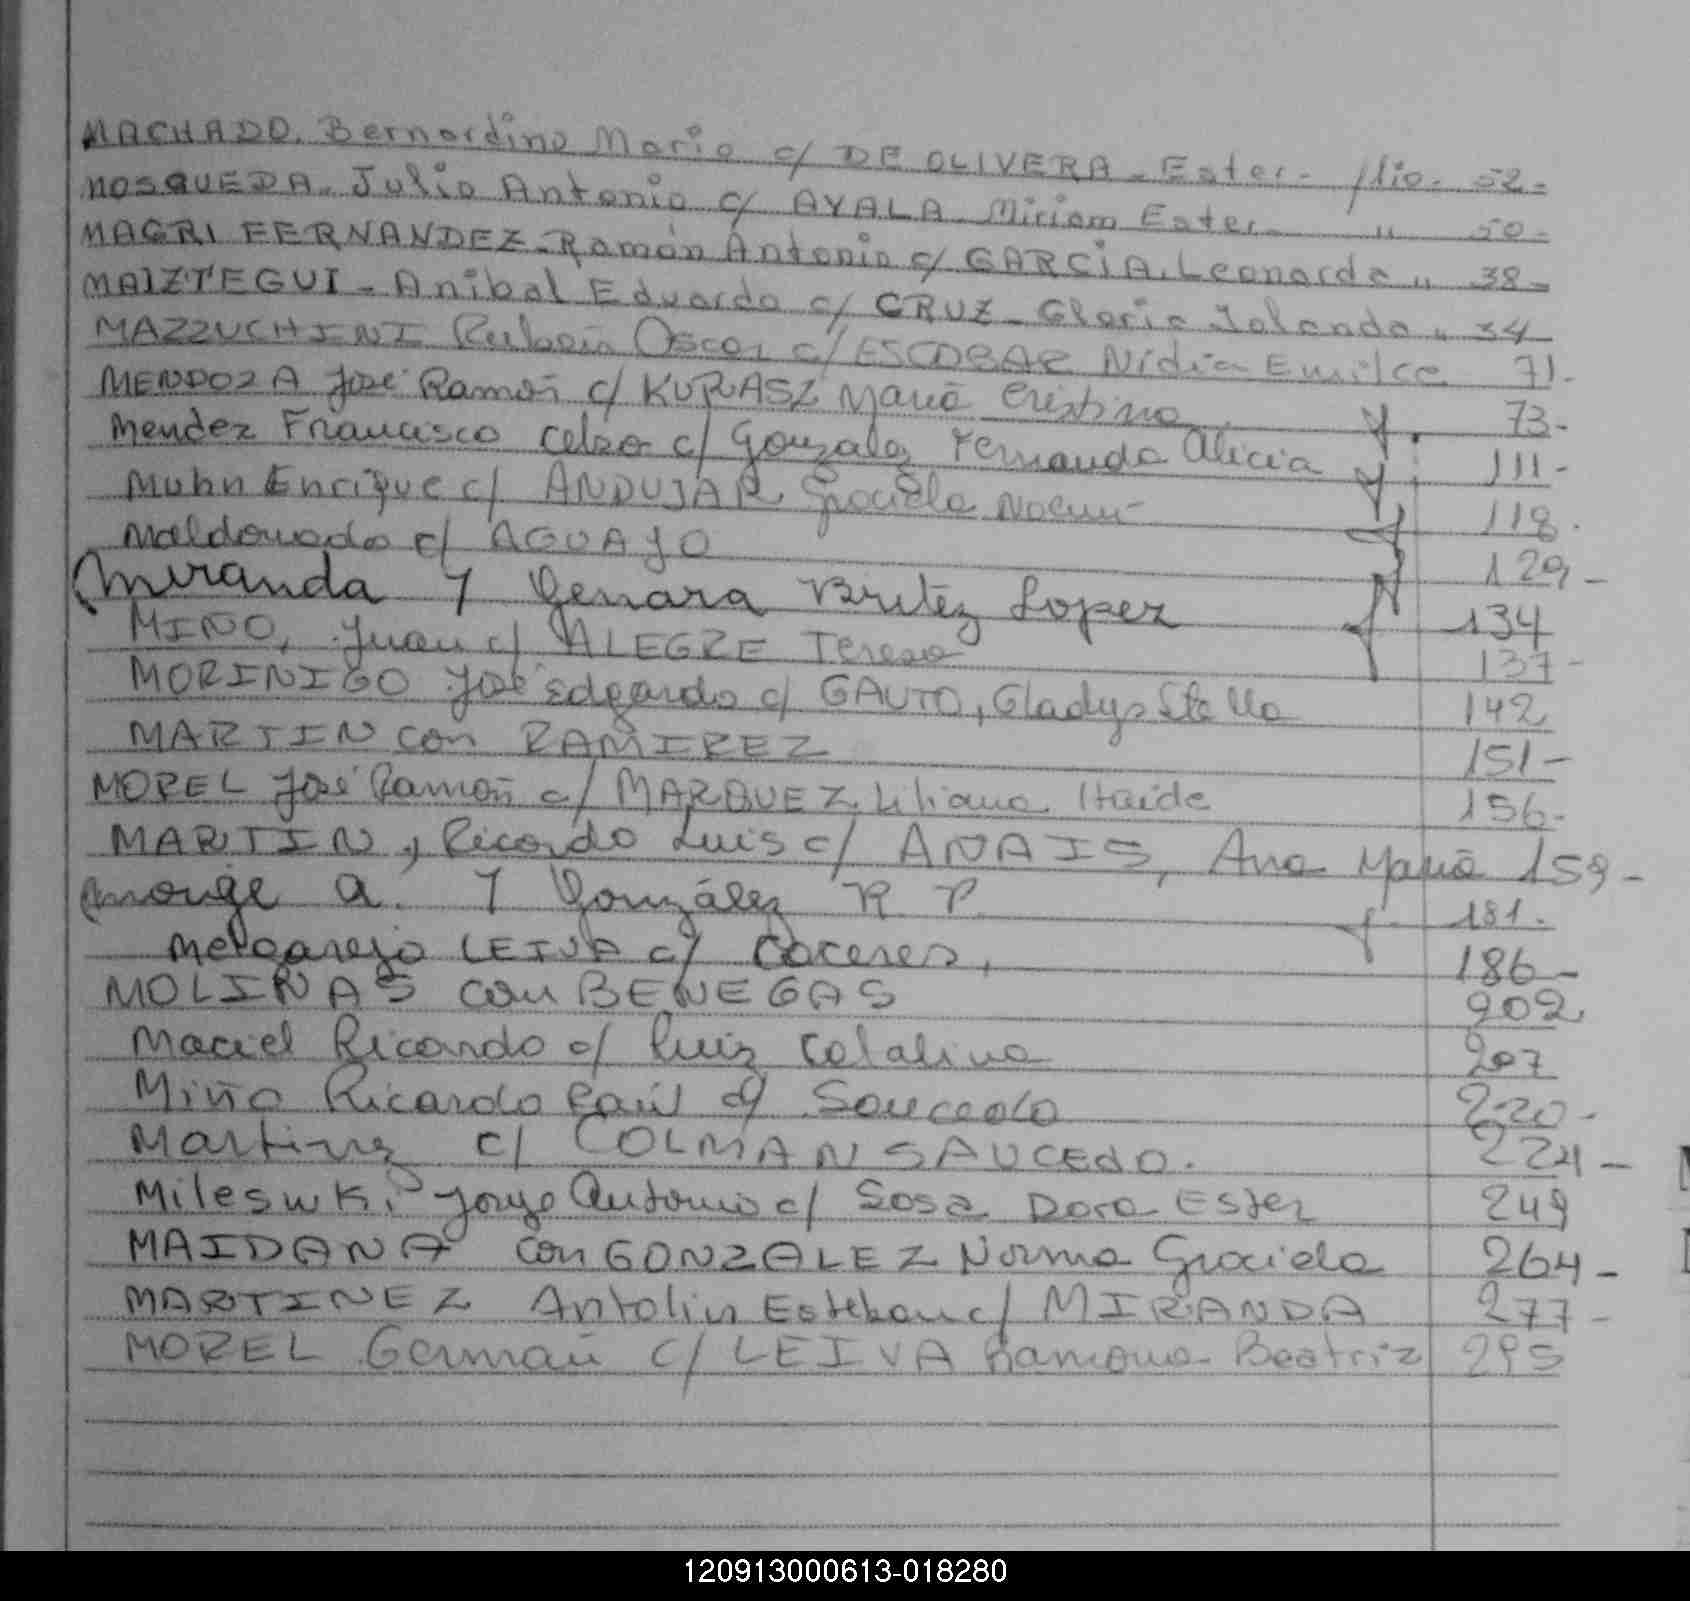 MACHADO. Bernardino Mario c/ DE OLIVERA - Ester - flio - 52 -
MOSQUEDA - Julio Antonio c/ AYALA - Miriam Ester - " 50 -
MAGRI FERNANDEZ - Ramón Antonio c/ GARCÍA. Leonarda " 38 -
MAIZTEGUI - Anibal Eduardo c/ CRUZ - Gloria Iolanda " 34
MAZZUCHINI Rubén Oscar c/ ESCOBAR Nidia Emilce 71 -
MENDOZA José Ramón c/ KURASZ María Cristina 73 -
Mendez Francisco Celso c/ Gonzalez Fernanda Alicia 111 -
Muhn Enrique c/ ANDUJAR Graciela Noemi 118 -
Maldonado c/ AGUAYO 129 -
Miranda y Genara Britez Lopez 134
MIÑO, Juan c/ ALEGRE Teresa 137 -
MORINIGO José Edgardo c/ GAUTO, Gladys Stella 142
MARTIN con RAMIREZ 151 -
MOREL José Ramón c/ MARQUEZ Liliana Haide 156 -
MARTIN, Ricardo Luis c/ ANAIS, Ana María 159 -
Monge A. y González R. P. 181 -
Melgarejo LEIVA c/ Caceres, 186 -
MOLINAS con BENEGAS 202
Maciel Ricardo c/ Ruiz Catalina 207
Miño Ricardo Raúl c/ Saucedo 220 -
Martinez c/ COLMAN SAUCEDO. 224 -
Mileswki Jorge Antonio c/ Sosa Dora Ester 249
MAIDANA con GONZALEZ Norma Graciela 264 -
MARTINEZ Antolin Esteban c/ MIRANDA 277 -
MOREL Germán c/ LEIVA Ramona Beatriz 295
120913000613-018280